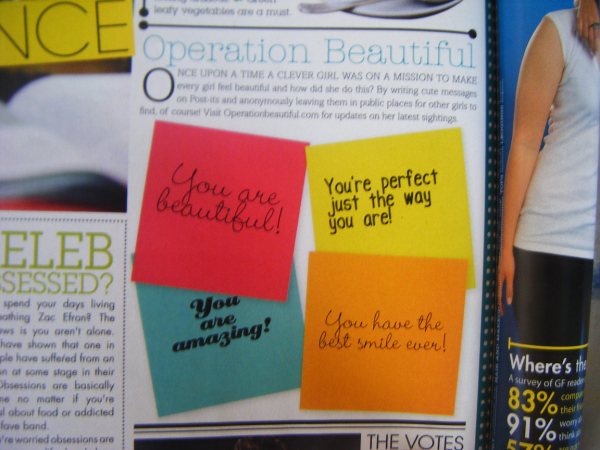 leafy vegetables are a must.
NCE
Operation Beautiful
ONCE UPON A TIME A CLEVER GIRL WAS ON A MISSION TO MAKE
every girl feel beautiful and how did she do this? By writing cute messages
on Post-its and anonymously leaving them in public places for other girls to
find, of course! Visit Operationbeautiful.com for updates on her latest sightings.
You are
beautiful!
You're perfect
just the way
you are!
You
are
amazing!
You have the
best smile ever!
ELEB
SESSED?
spend your days living
athing Zac Efron? The
ws is you aren't alone.
have shown that one in
ple have suffered from an
n at some stage in their
Obsessions are basically
me no matter if you're
l about food or addicted
fave band.
're worried obsessions are
THE VOTES
Where's th
A survey of GF reade
83% comp
their
91% worry
think
57%